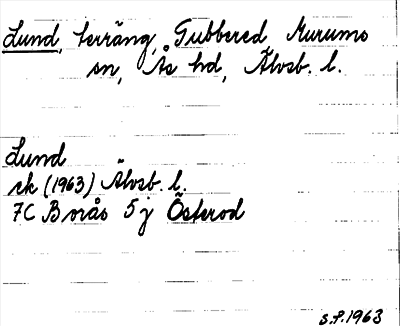 Lund, terräng, Tubbered Murums
sn, Ås hd, Älvsb. l.
Lund
ek (1963) Älvsb. l.
7C Borås 5j Österod
s.f. 1963